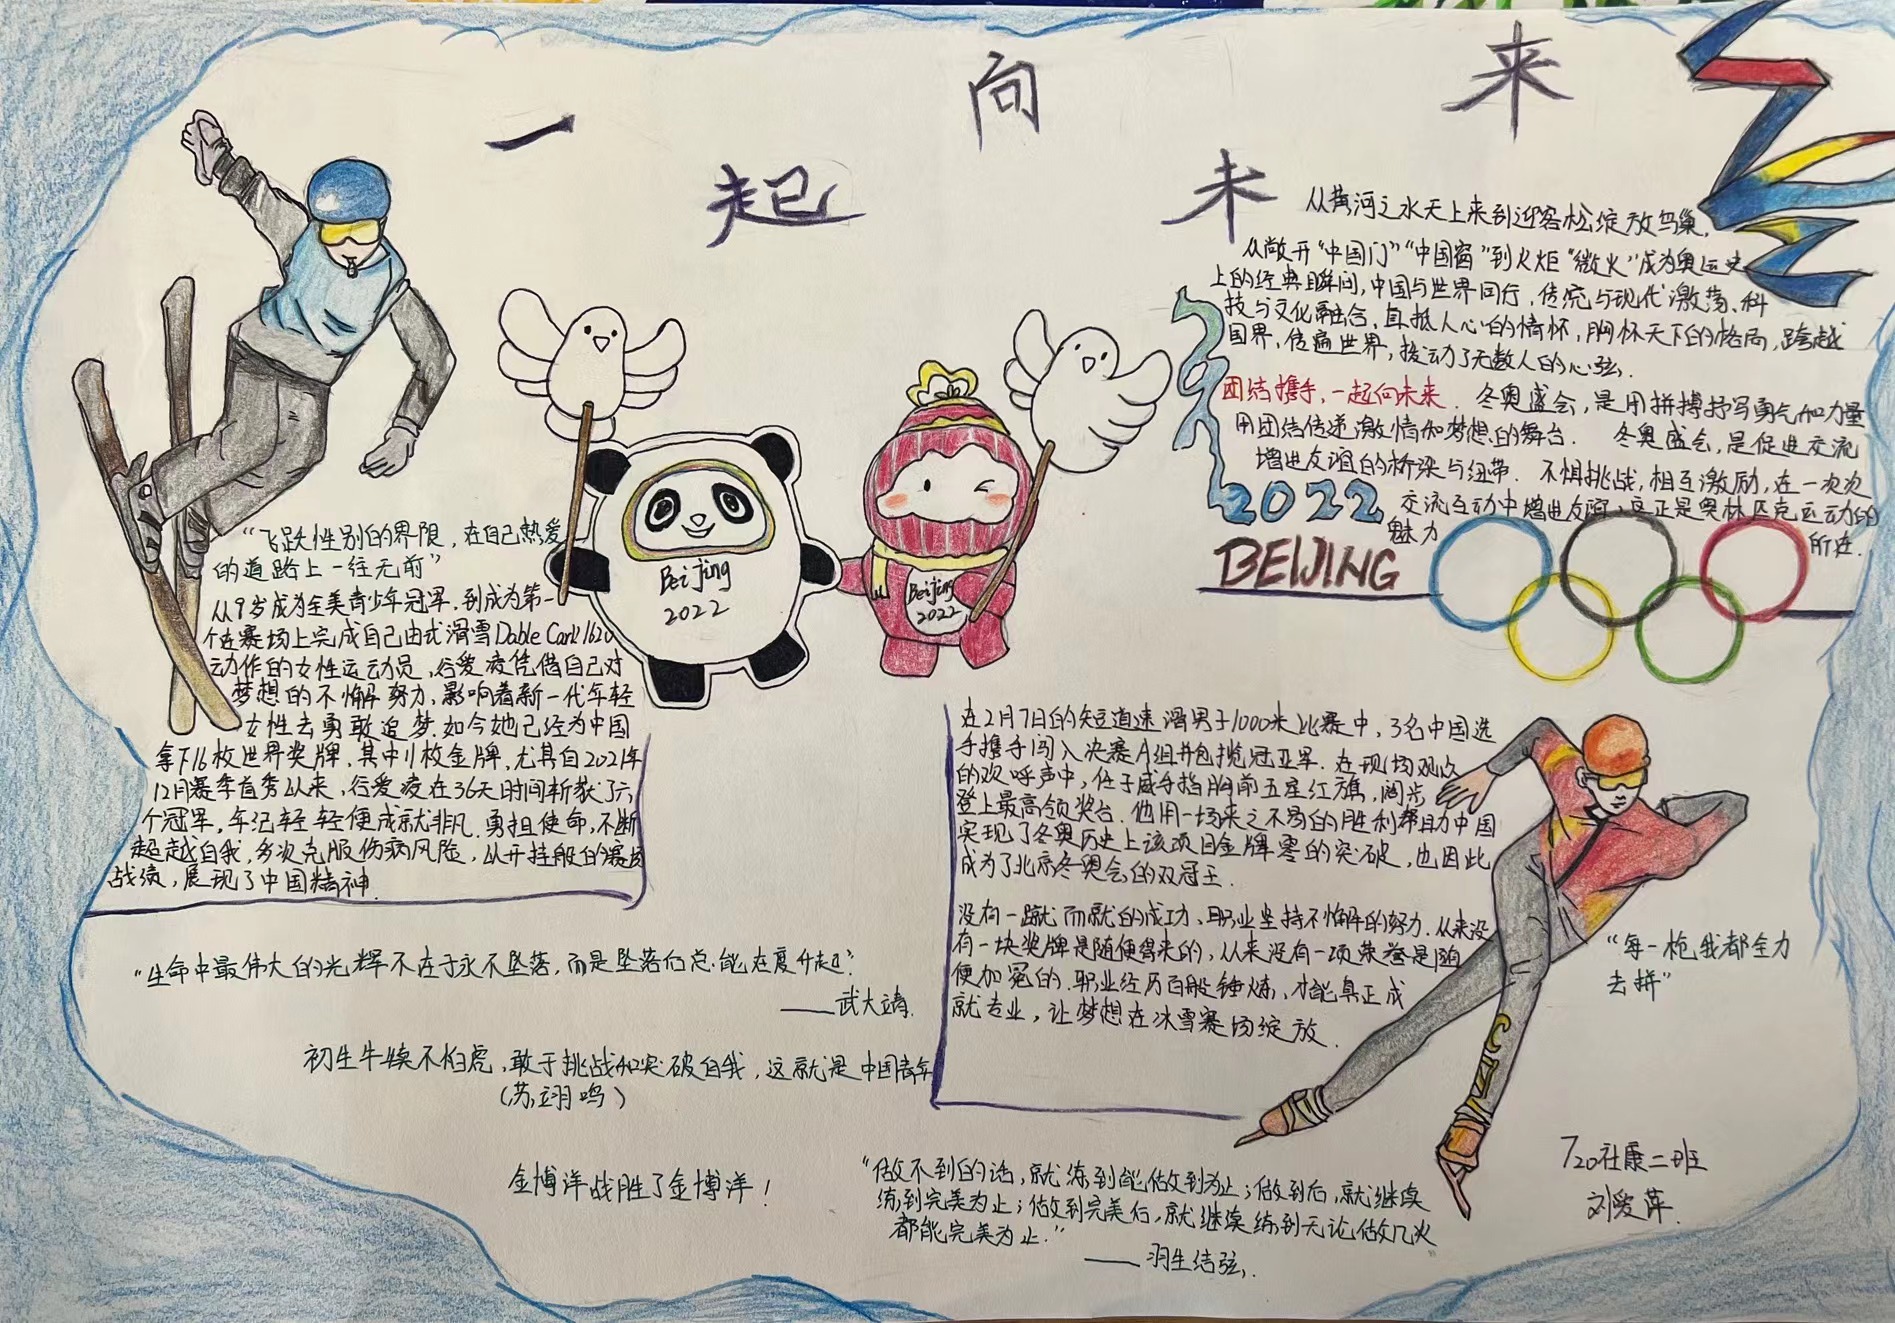 一起向未来
从黄河之水天上来到迎客松绽放鸟巢,
从敞开“中国门”“中国窗”到火炬“微火”成为奥运史
上的经典瞬间,中国与世界同行,传统与现代激荡、科
技与文化融合、直抵人心的情怀,胸怀天下的格局,跨越
国界,传遍世界,拨动了无数人的心弦.
团结携手,一起向未来. 冬奥盛会,是用拼搏抒写勇气和力量
用团结传递激情和梦想的舞台. 冬奥盛会,是促进交流
增进友谊的桥梁与纽带. 不惧挑战,相互激励,在一次次
交流互动中增进友谊,这正是奥林匹克运动的
魅力
所在.
2022
2022
BEIJING
Beijing
2022
Beijing
2022
“飞跃性别的界限,在自己热爱
的道路上一往无前”
从9岁成为全美青少年冠军,到成为第一
个在赛场上完成自己由式滑雪Dable Cark1620
动作的女性运动员,谷爱凌凭借自己对
梦想的不懈努力,影响着新一代年轻
女性去勇敢追梦.如今她已经为中国
拿下16枚世界奖牌.其中11枚金牌,尤其自2021年
12月赛季首秀以来,谷爱凌在36天时间斩获了六
个冠军,年纪轻轻便成就非凡.勇担使命,不断
超越自我,多次克服伤病风险,从开挂般的赛场
战绩,展现了中国精神.
在2月7日的短道速滑男子1000米比赛中,3名中国选
手携手闯入决赛A组并包揽冠亚军.在现场观众
的欢呼声中,任子威手指胸前五星红旗,阔步
登上最高领奖台.他用一场来之不易的胜利帮助中国
实现了冬奥历史上该项目金牌零的突破,也因此
成为了北京冬奥会的双冠王.
没有一蹴而就的成功、职业坚持不懈的努力.从来没
有一块奖牌是随便得来的,从来没有一项荣誉是随
便加冕的.职业经历百般锤炼,才能真正成
就专业,让梦想在冰雪赛场绽放.
“每一枪我都全力
去拼”
“生命中最伟大的光辉不在于永不坠落,而是坠落后总能在复升起”.
——武大靖.
初生牛犊不怕虎,敢于挑战和突破自我,这就是中国青年
(苏翊鸣)
金博洋战胜了金博洋!
“做不到的话,就练到能做到为止;做到后,就继续
练到完美为止;做到完美后,就继续练到无论做几次
都能完美为止.”
——羽生结弦.
720社康二班
刘爱萍.